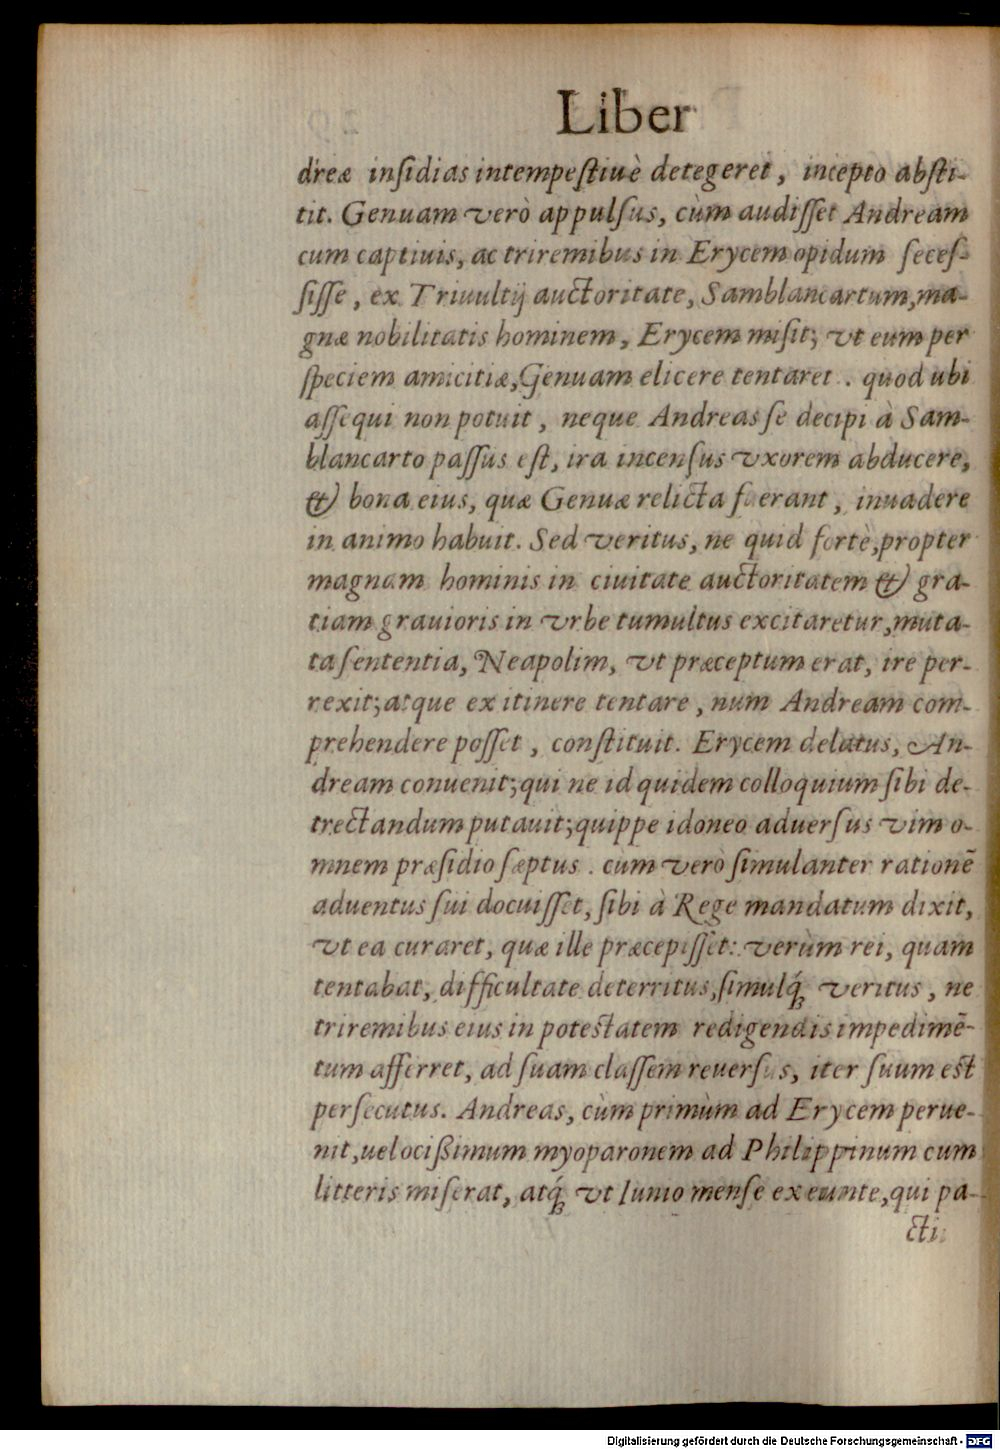 Liber
dreæ inſidias intempeſtiuè detegeret, incepto abſti-
tit. Genuam verò appulſus, cùm audiſſet Andream
cum captiuis, ac triremibus in Erycem opidum ſeceſ-
ſiſſe, ex Triuultij auctoritate, Samblancartum, ma-
gnæ nobilitatis hominem, Erycem miſit; vt eum per
ſpeciem amicitiæ, Genuam elicere tentaret. quod ubi
aſſequi non potuit, neque Andreas ſe decipi à Sam-
blancarto paſſus eſt, ira incenſus vxorem abducere,
& bona eius, quæ Genuæ relicta fuerant, inuadere
in animo habuit. Sed veritus, ne quid fortè, propter
magnam hominis in ciuitate auctoritatem & gra-
tiam grauioris in vrbe tumultus excitaretur, muta-
ta ſententia, Neapolim, vt præceptum erat, ire per-
rexit; atque ex itinere tentare, num Andream com-
prehendere poſſet, conſtituit. Erycem delatus, An-
dream conuenit; qui ne id quidem colloquium ſibi de-
trectandum putauit; quippe idoneo aduerſus vim o-
mnem præſidio ſæptus. cum verò ſimulanter rationē
aduentus ſui docuiſſet, ſibi à Rege mandatum dixit,
vt ea curaret, quæ ille præcepiſſet: verùm rei, quam
tentabat, difficultate deterritus, ſimulq́; veritus, ne
triremibus eius in poteſtatem redigendis impedimē-
tum afferret, ad ſuam claſſem reuerſus, iter ſuum eſt
perſecutus. Andreas, cùm primùm ad Erycem perue-
nit, uelocißimum myoparonem ad Philippinum cum
litteris miſerat, atq́; vt Iunio menſe exeunte, qui pa-
cti
Digitalisierung gefördert durch die Deutsche Forschungsgemeinschaft - DFG